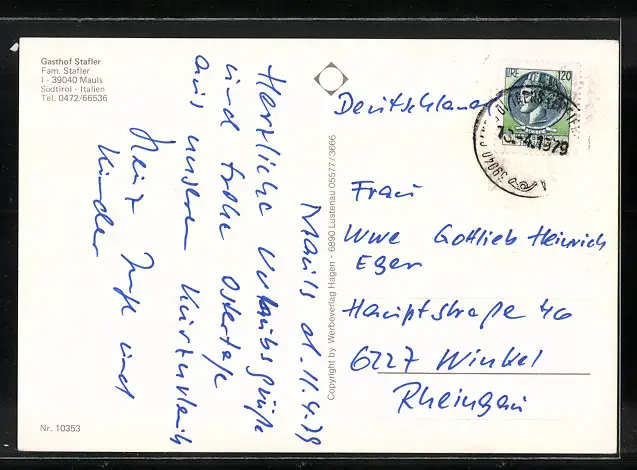 Gasthof Stafler
Fam. Stafler
I - 39040 Mauls
Südtirol - Italien
Tel. 0472/66536
Mauls d. 11.4.79
Herzliche Urlaubsgrüße
und frohe Ostertage
aus unserem Kurzurlaub
Heinz und
Kinder
Nr. 10353
Copyright by Werbeverlag Hagen - 6890 Lustenau 05577/3666
LIRE 120
39040
-4.1979
Deutschland
Frau
Wwe Gottlieb Heinrich
Eger
Hauptstraße 46
6227 Winkel
Rheingau